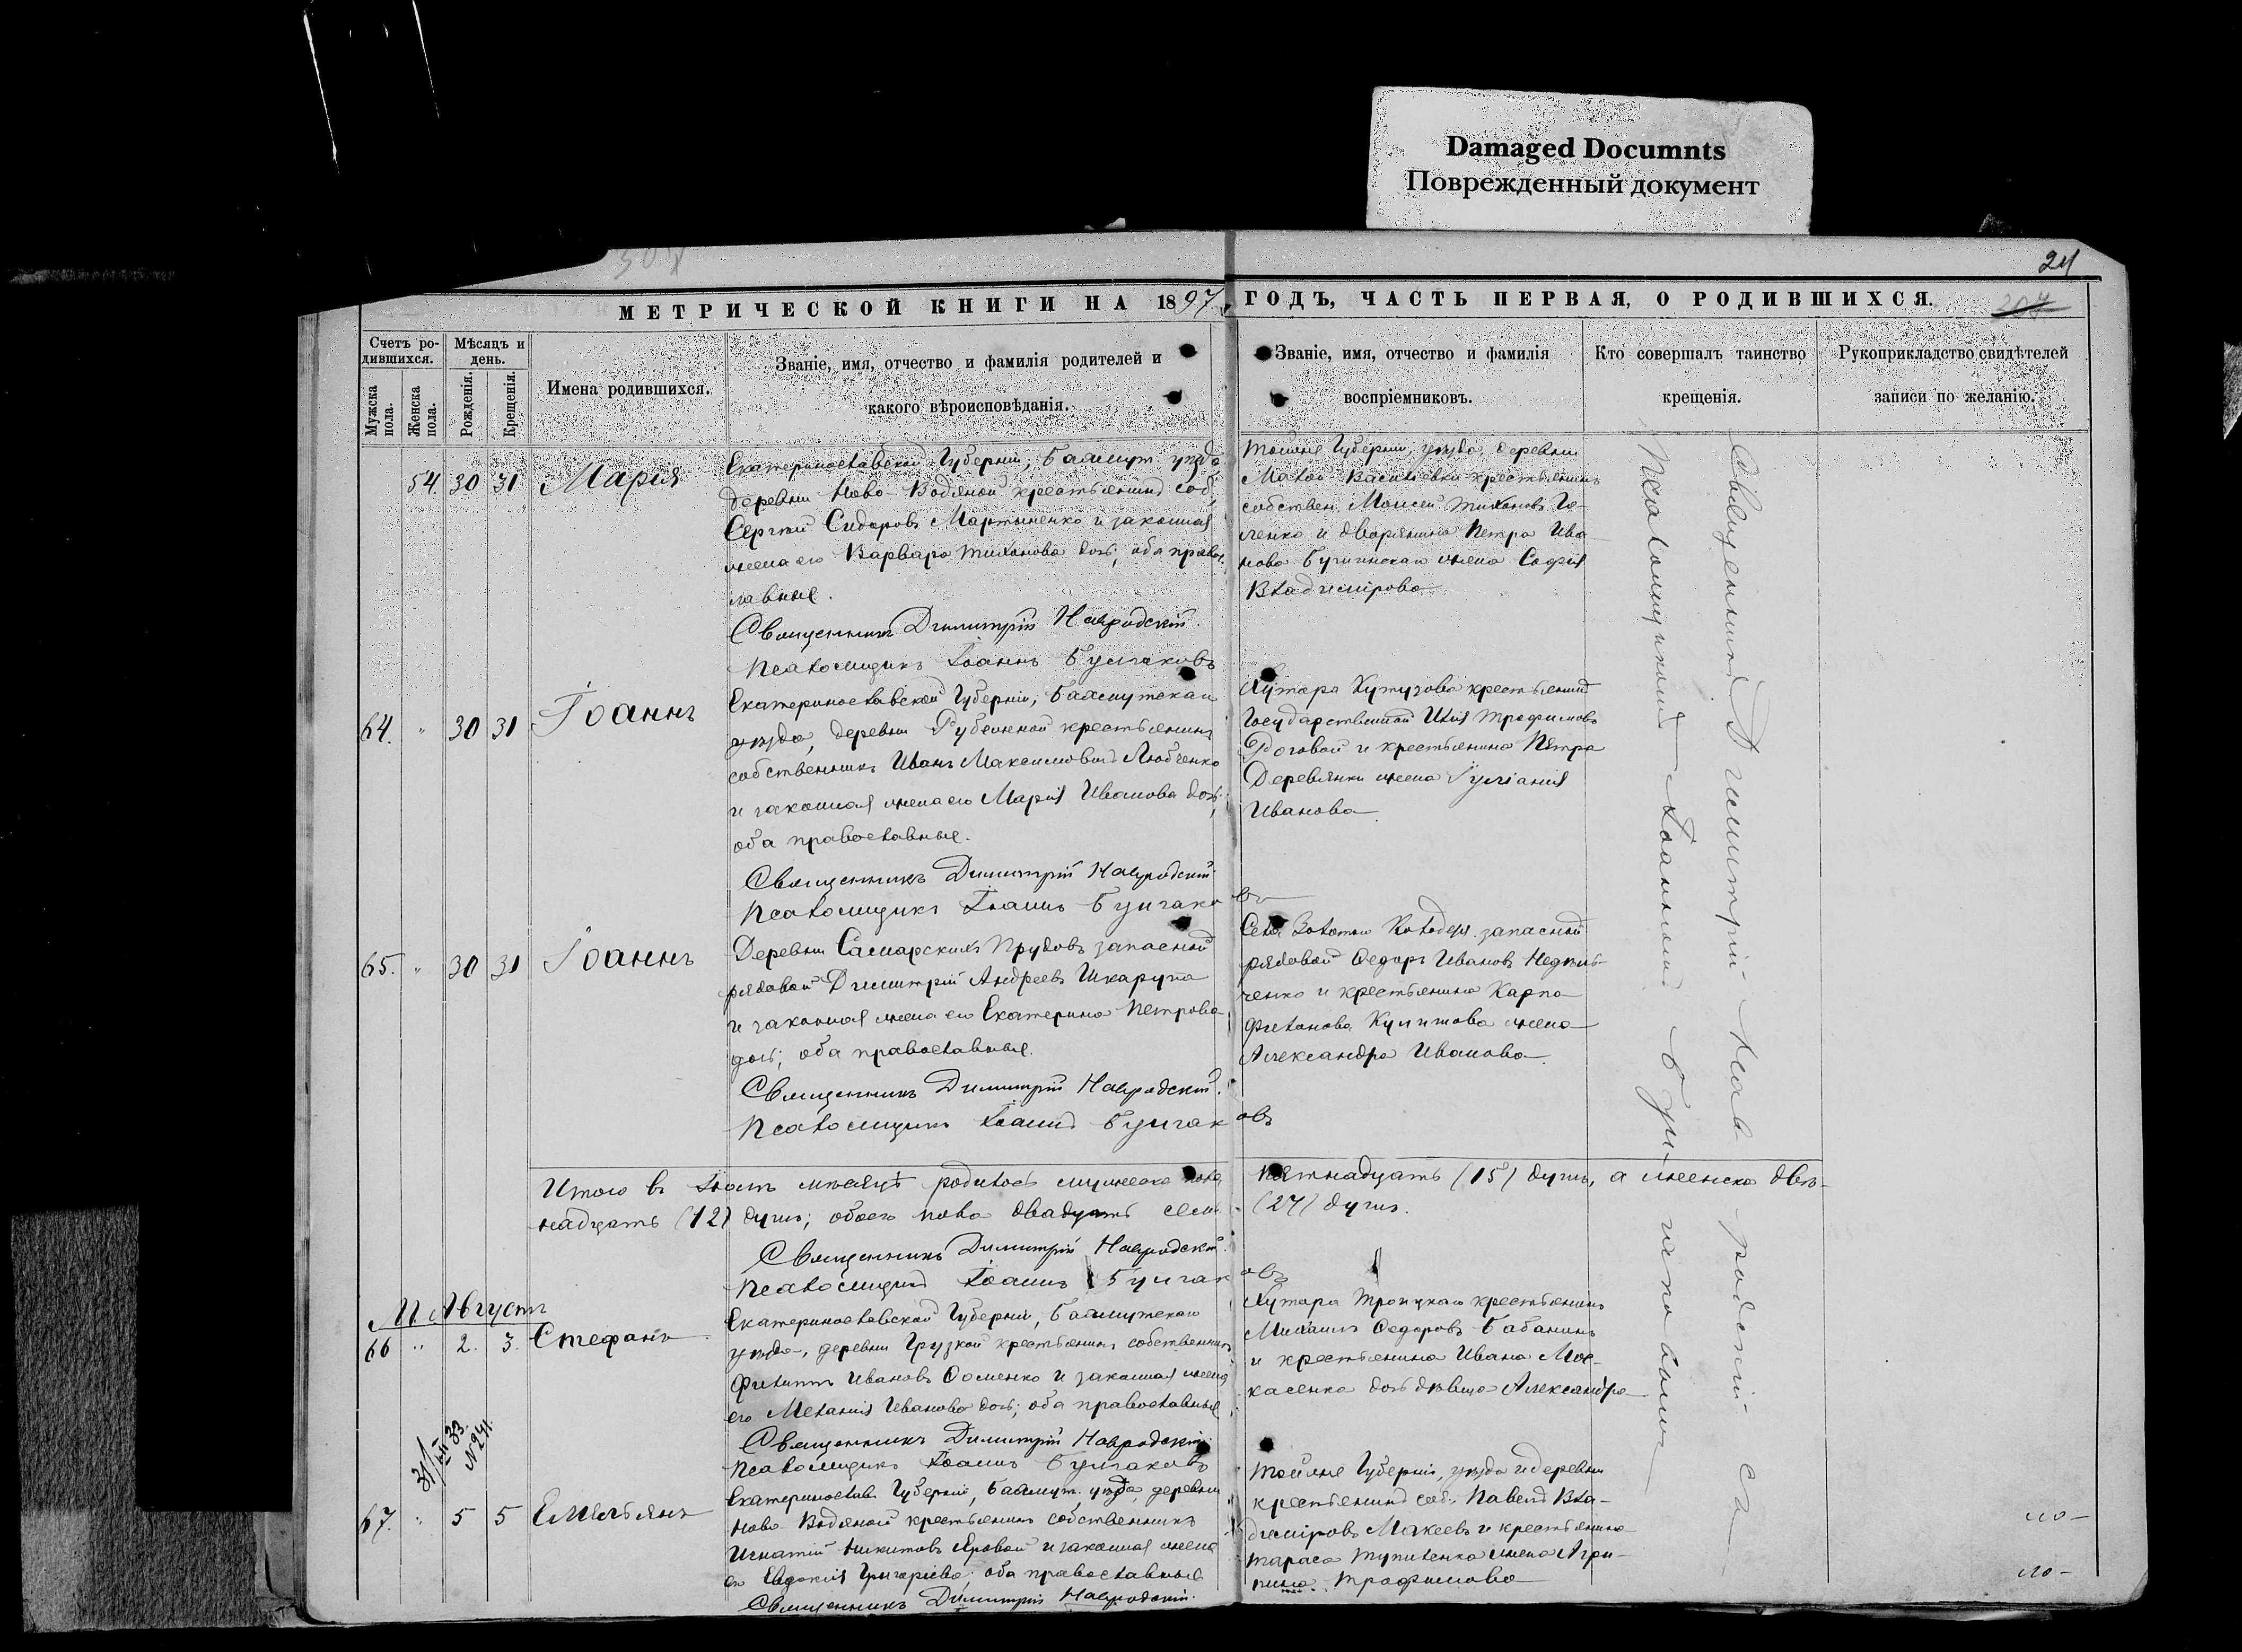 Damaged Documnts
Поврежденный документ
24
МЕТРИЧЕСКОЙ КНИГИ НА 1897
ГОДЪ, ЧАСТЬ ПЕРВАЯ, О РОДИВШИХСЯ.
Счетъ ро-
дившихся.
Мужска
пола.
Женска
пола.
Мѣсяцъ и
день.
Рожденія.
Крещенія.
Имена родившихся.
Званіе, имя, отчество и фамилія родителей и
какого вѣроисповѣданія.
Званіе, имя, отчество и фамилія
воспріемниковъ.
Кто совершалъ таинство
крещенія.
Рукоприкладство свидѣтелей
записи по желанію.
54. 30 31 Марія
Екатеринославской Губерніи, Бахмут. уѣзда
деревни Ново-Водяной крестьянинъ соб.
Сергѣй Сидоровъ Мартыненко и законная
жена его Варвара Тихонова дочь; оба правос
лавные.
Священникъ Димитрій Навродскій.
Псаломщикъ Іоаннъ Булгаковъ
Тойже Губерніи, уѣзда, деревни
Малой Васильевки крестьянинъ
собствен. Моисей Тихоновъ Го-
ленко и дворянина Петра Ива-
нова жена Софія
Владимірова
64. " 30 31 Іоаннъ
Екатеринославской Губерніи, Бахмутскаго
уѣзда, деревни Рубежной крестьянинъ
собственникъ Иванъ Максимовъ Любченко
и законная жена его Марія Иванова дочь;
оба православные.
Священникъ Димитрій Навродскій
Псаломщикъ Іоаннъ Булгаковъ
Хутора Кутузова крестьянинъ
Государственный Илія Трофимовъ
и крестьянина Петра
Деревянки жена Іуліанія
Иванова
65. " 30 31 Іоаннъ
Деревни Самарскихъ Прудовъ запасный
рядовой Димитрій Андреевъ Шкарупа
и законная жена его Екатерина Петрова
дочь; оба православные.
Священникъ Димитрій Навродскій.
Псаломщикъ Іоаннъ Булгаковъ
Села Золотой Колодезь запасный
рядовой Ѳедоръ Ивановъ
и крестьянина Карпа
Филонова жена
Александра Иванова
Итого въ Іюлѣ мѣсяцѣ родилось мужеска пола пятнадцать (15) душъ, а женска двѣ-
надцать (12) душъ; обоего пола двадцать семь (27) душъ.
Священникъ Димитрій Навродскій.
Псаломщикъ Іоаннъ Булгаковъ
М. Августъ
66 " 2. 3. Стефанъ
Екатеринославской Губерніи, Бахмутскаго
уѣзда, деревни Грузкой крестьянинъ собственникъ
Филиппъ Ивановъ Ѳоменко и законная жена
его Меланія Иванова дочь; оба православные
Священникъ Димитрій Навродскій
Псаломщикъ Іоаннъ Булгаковъ
Хутора Троицкаго крестьянинъ
Михаилъ Ѳедоровъ Бабанинъ
и крестьянина Ивана Мос-
касенка дочь дѣвица Александра
№ 241.
67. " 5 5 Емельянъ
Екатеринослав. Губерніи, Бахмут. уѣзда, деревни
Ново Водяной крестьянинъ собственникъ
Игнатій Никитовъ Яровой и законная жена
его Евдокія Григоріева; оба православные
Священникъ Димитрій Навродскій.
Тойже Губерніи, уѣзда и деревни
крестьянинъ соб. Павелъ Вла-
диміровъ Мокеевъ и крестьянина
Тараса Тупиленка жена Агри-
пина Трофимова
Священникъ Димитрій Навродскій съ
Псаломщикомъ Іоанномъ Булгаковымъ